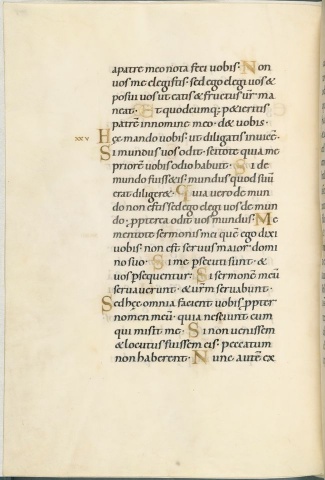 apatre meo nota feci uobis· Non
uos me elegistis· sed ego elegi uos &
posui uos ut eatis & fructus ur̄ ma
neat· Et quodcumq; petieritis
patrē in nomine meo· d& uobis·
xxv Hęc mando uobis· ut diligatis inuicē·
Si mundus uos odit· scitote quia me
priorē uobis odio habuit· Si de
mundo fuisse&is· mundus quod suū
erat diliger&· Quia uero de mun
do non estis sed ego elegi uos de mun
do· ppterea odit uos mundus· Me
mentote sermonis mei quē ego dixi
uobis· non est seruus maior domi
no suo· Si me psecuti sunt· &
uos psequentur· Si sermonē meū
seruauerunt· & urm̄ seruabunt·
Sed hęc omnia facient uobis ppter
nomen meū· quia nesciunt eum
qui misit me· Si non uenissem
& locutus fuissem eis· peccatum
non haberent· Nunc autē ex